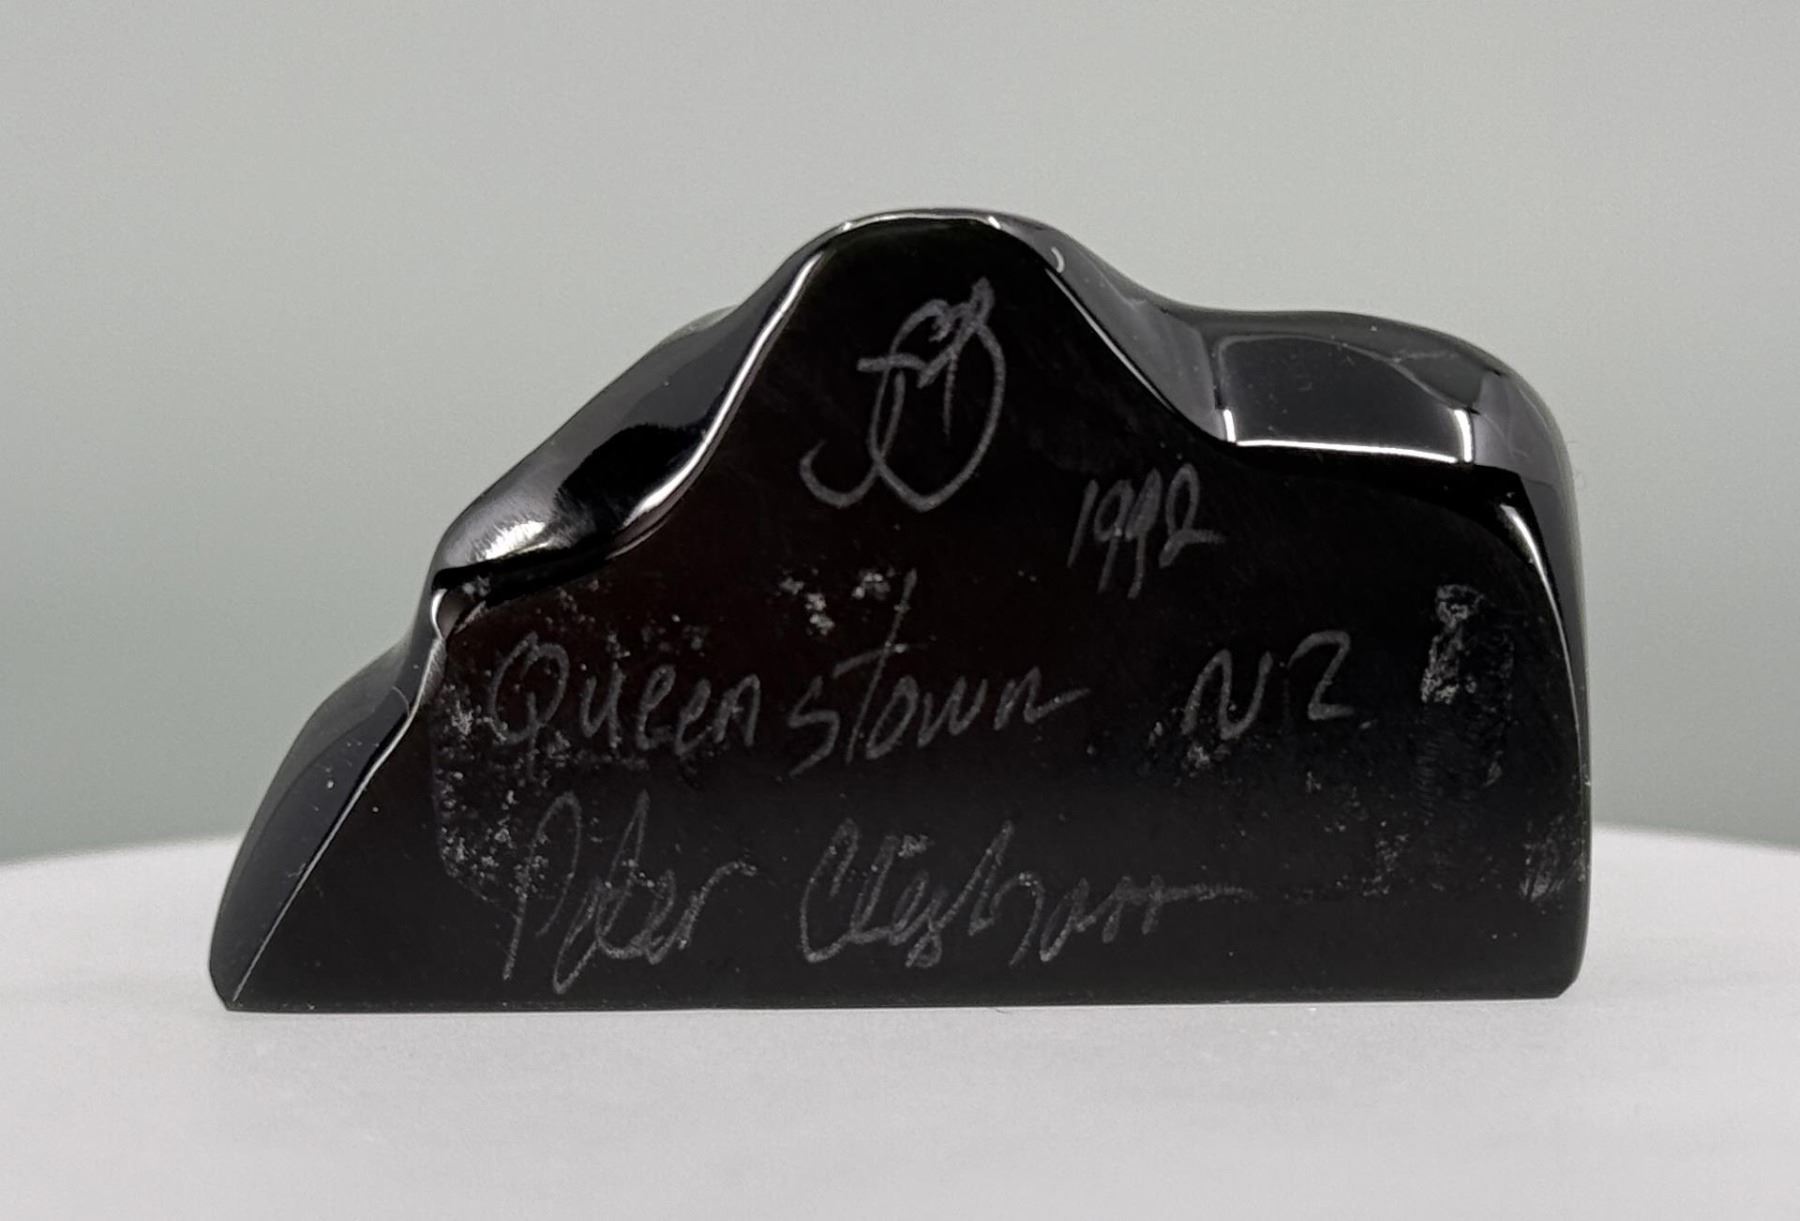 1992
Queenstown NZ
Peter